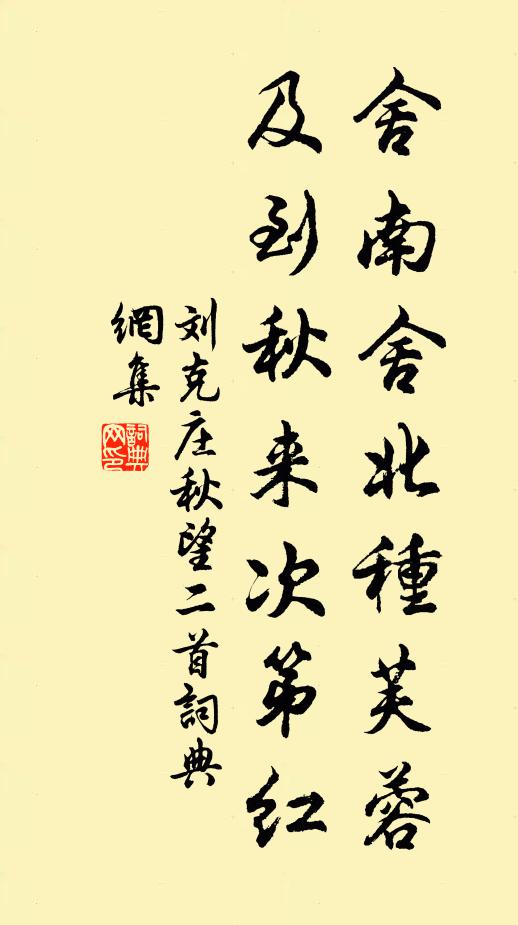 舍南舍北種芙蓉
及到秋来次第红
刘克庄秋望二首詞典
網集
詞典網印